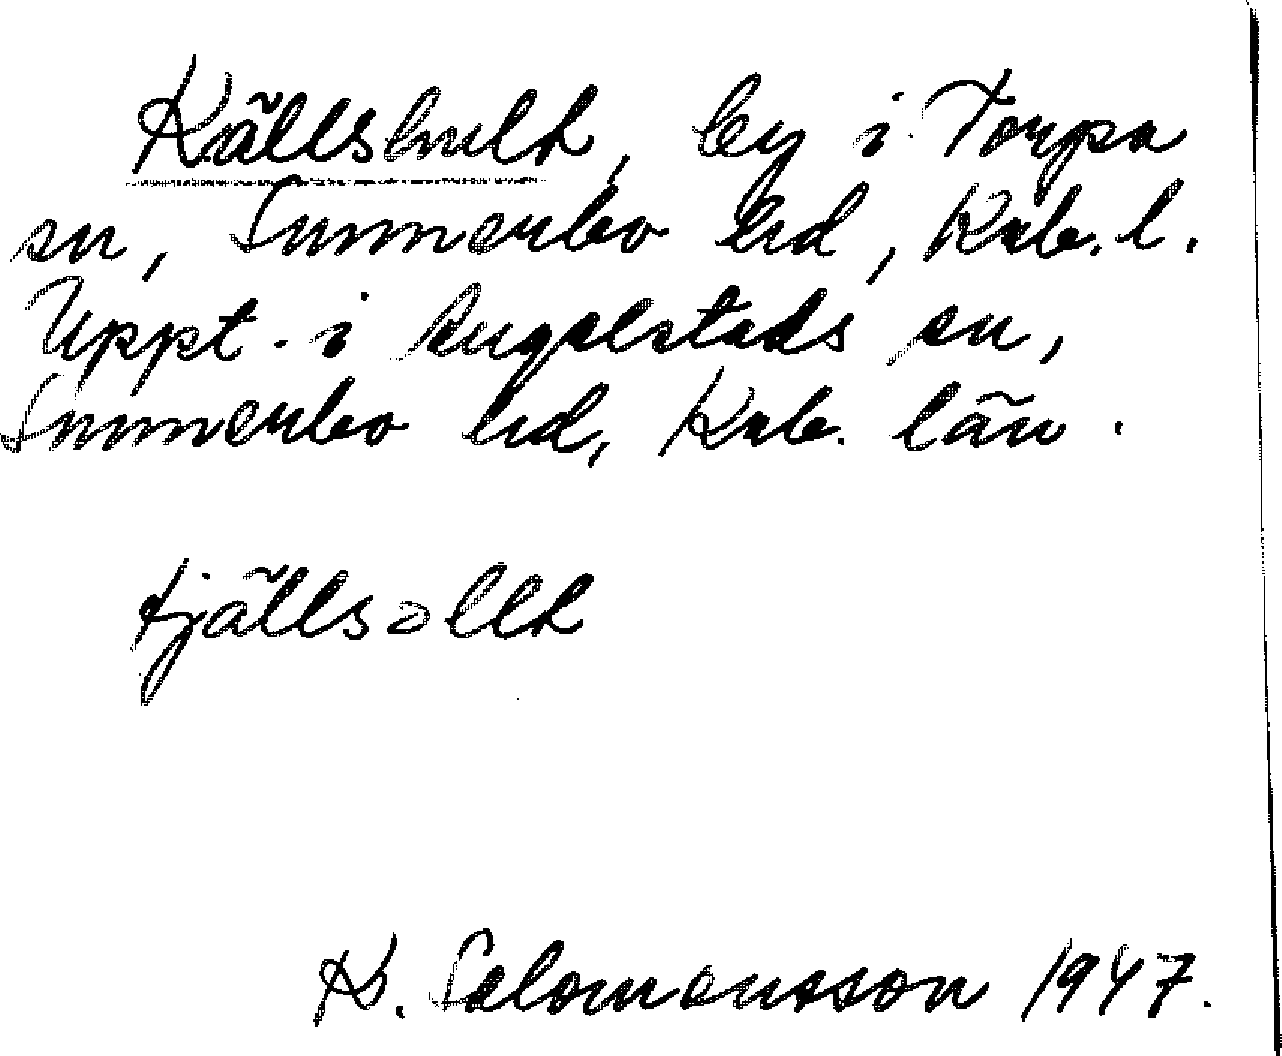 Källshult, by i Torpa
sn, Sunnerbo hd, Krb. l.
Uppt. i Angelstads sn,
Sunnerbo hd, Krb. län.
tjällsəllt
K. Salomonsson 1947.